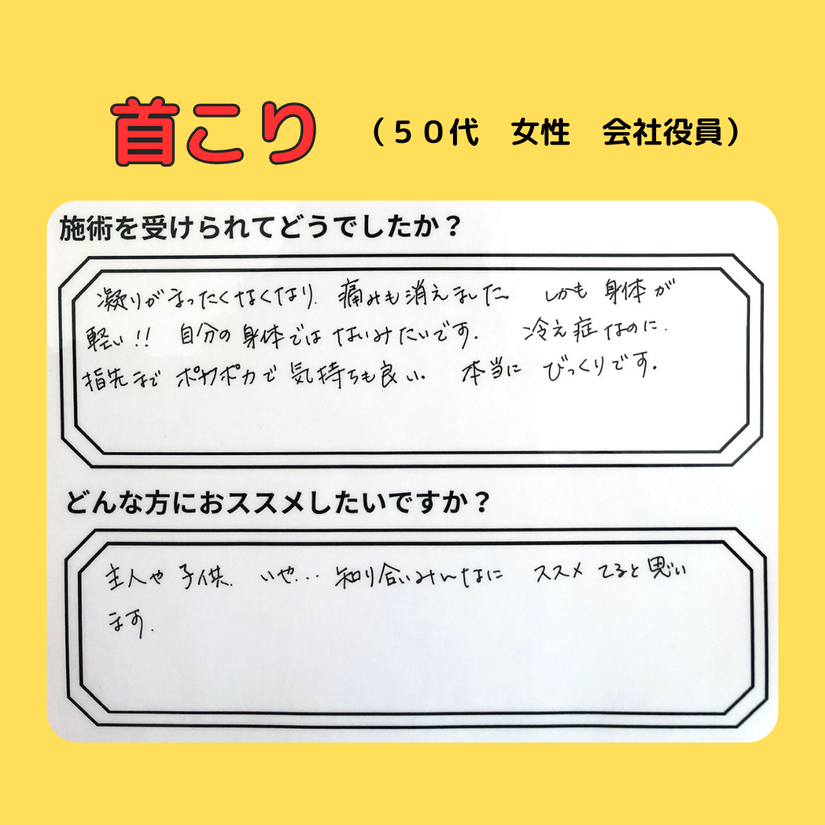 首こり （５０代　女性　会社役員）
施術を受けられてどうでしたか？
凝りがまったくなくなり、痛みも消えました。 しかも 身体が
軽い!! 自分の身体では ないみたいです。 冷え症なのに、
指先まで ポカポカで 気持ちも良い。 本当に びっくりです。
どんな方におススメしたいですか？
主人や 子供、 いや… 知り合いみんなに ススメ てると思い
ます。